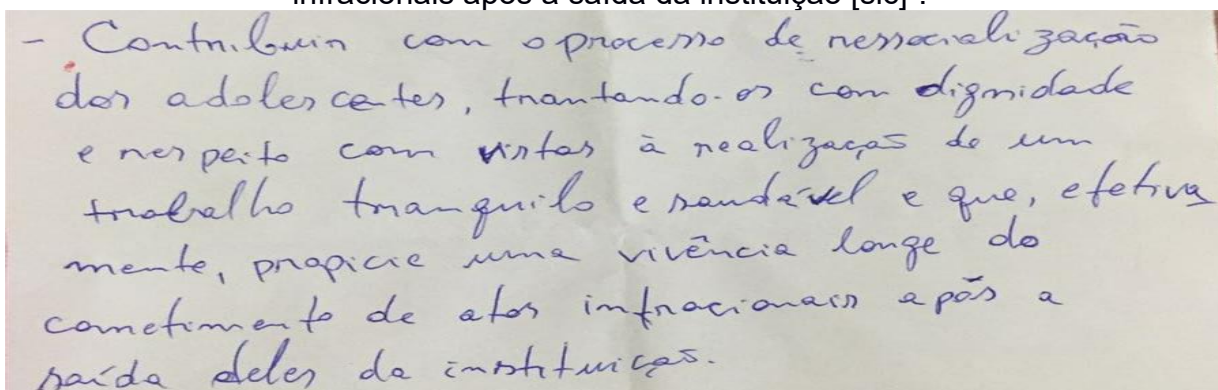 infracionais após a saída da instituição [sic]".
- Contribuir com o processo de ressocialização
dos adolescentes, tratando-os com dignidade
e respeito com vistas à realização de um
trabalho tranquilo e saudável e que, efetiva
mente, propicie uma vivência longe do
cometimento de atos infracionais após a
saída deles da instituição.